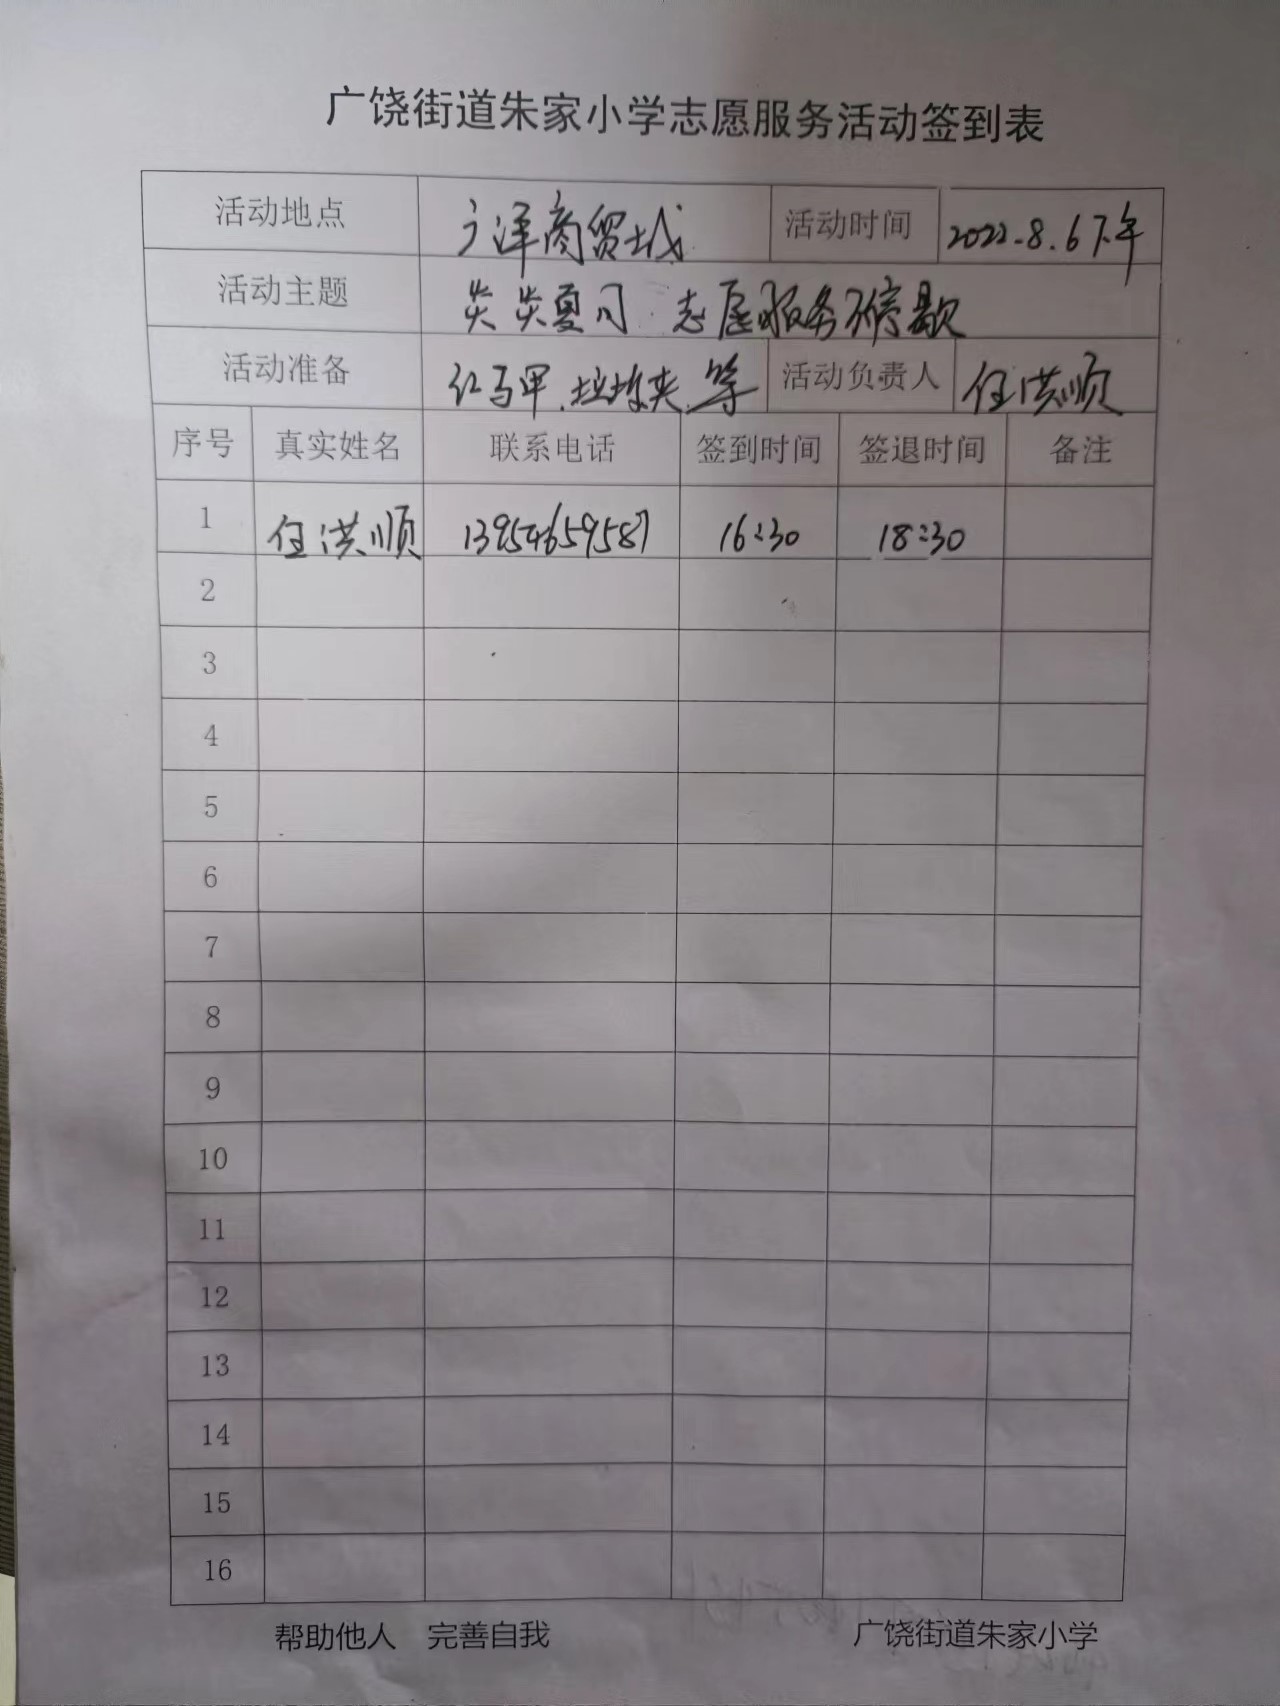 广饶街道朱家小学志愿服务活动签到表
活动地点 广泽商贸城 活动时间 2022.8.6下午
活动主题 炎炎夏日 志愿服务不停歇
活动准备 红马甲.垃圾夹.等 活动负责人 任洪顺
序号 真实姓名 联系电话 签到时间 签退时间 备注
1 任洪顺 13954659587 16:30 18:30
2
3
4
5
6
7
8
9
10
11
12
13
14
15
16
帮助他人 完善自我 广饶街道朱家小学